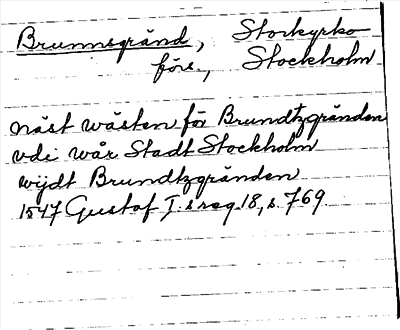 Brunnsgränd, Storkyrko
förs., Stockholm
näst wästen för Brundtzgränden
vdi wår Stadt Stockholm
wijdt Brundtzgränden
1547 Gustaf I:s reg. 18, s. 769